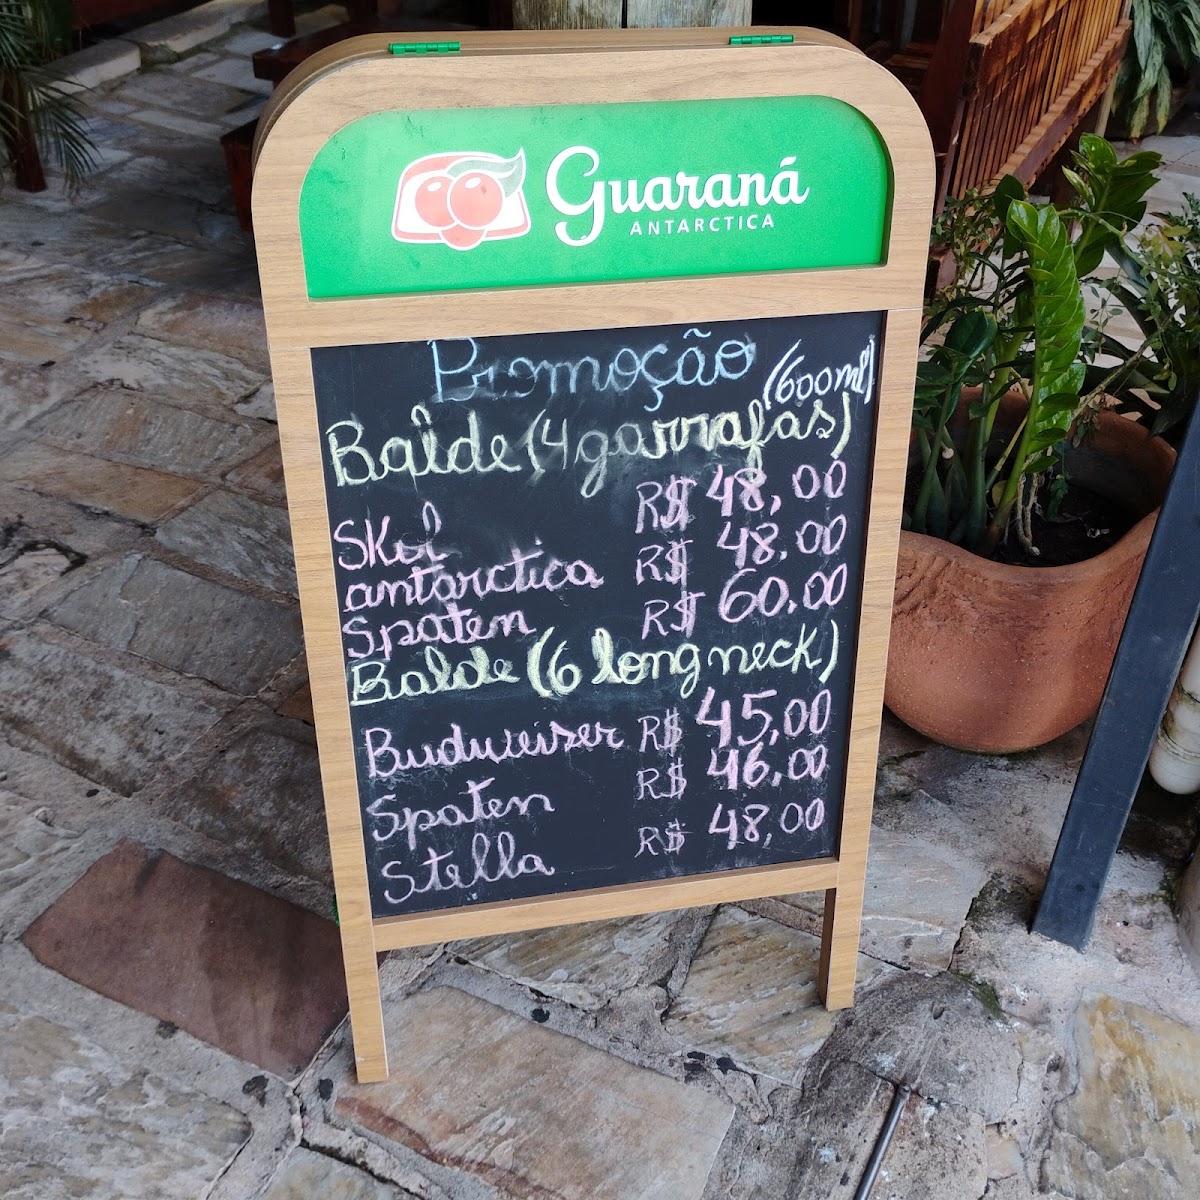 Guaraná
ANTARCTICA
Promoção
(600ml)
Balde (4 garrafas)
Skol R$ 48,00
antarctica R$ 48,00
Spaten R$ 60,00
Balde (6 long neck)
Budweiser R$ 45,00
Spaten R$ 46,00
Stella R$ 48,00